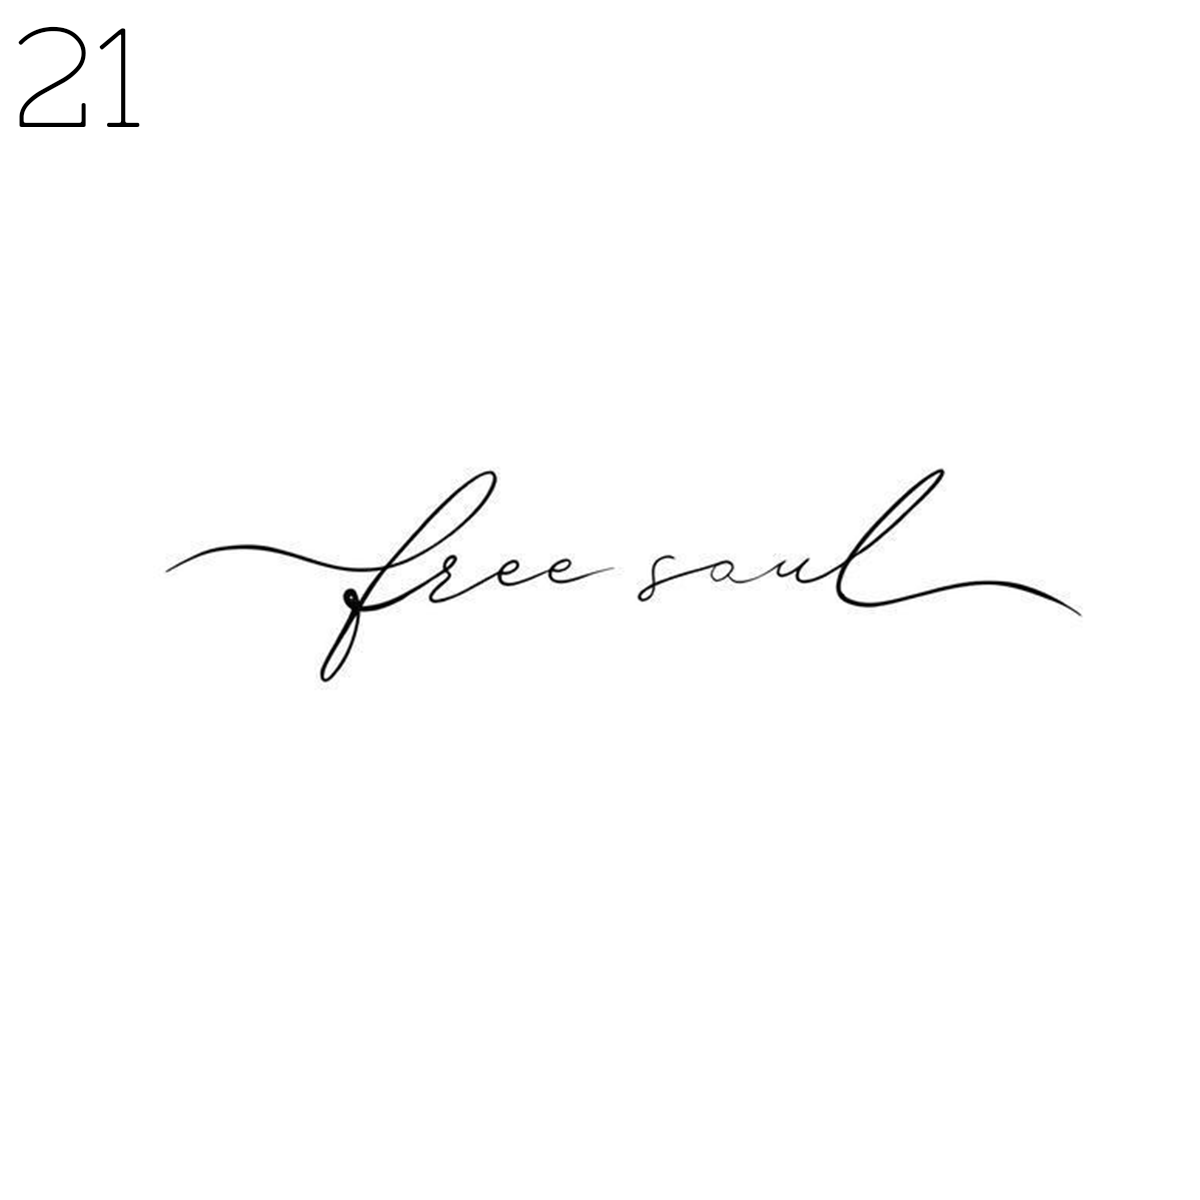 21
free soul